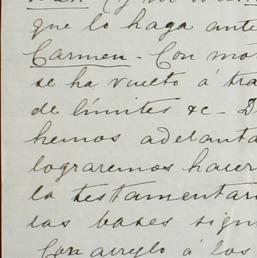 que lo haga ante
Carmen - Con mo
se ha vuelto á tra
de límites &c - D
hemos adelanta
lograremos hacer
la testamentari
las bases sigu
Con arreglo á los